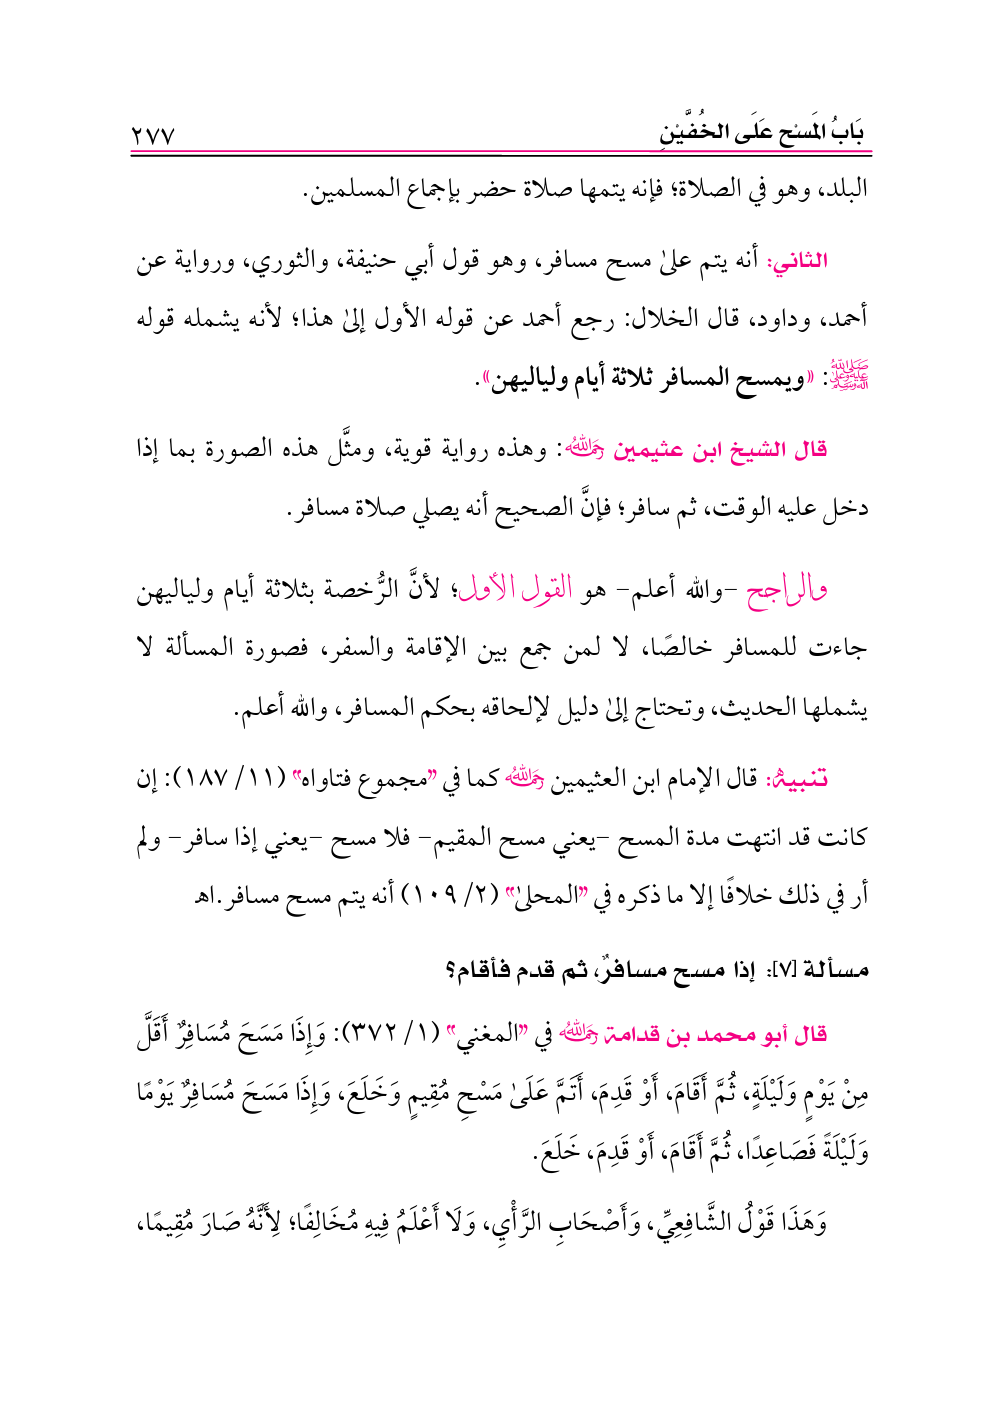 بَابُ المَسْحِ عَلَى الخُفَّيْنِ ٢٧٧
البلد، وهو في الصلاة؛ فإنه يتمها صلاة حضر بإجماع المسلمين.
الثاني: أنه يتم علىٰ مسح مسافر، وهو قول أبي حنيفة، والثوري، ورواية عن
أحمد، وداود، قال الخلال: رجع أحمد عن قوله الأول إلىٰ هذا؛ لأنه يشمله قوله
ﷺ: «ويمسح المسافر ثلاثة أيام ولياليهن».
قال الشيخ ابن عثيمين رحمه الله: وهذه رواية قوية، ومثَّل هذه الصورة بما إذا
دخل عليه الوقت، ثم سافر؛ فإنَّ الصحيح أنه يصلي صلاة مسافر.
والراجح -والله أعلم- هو القول الأول؛ لأنَّ الرُّخصة بثلاثة أيام ولياليهن
جاءت للمسافر خالصًا، لا لمن جمع بين الإقامة والسفر، فصورة المسألة لا
يشملها الحديث، وتحتاج إلىٰ دليل لإلحاقه بحكم المسافر، والله أعلم.
تنبيهٌ: قال الإمام ابن العثيمين رحمه الله كما في "مجموع فتاواه" (١١/ ١٨٧): إن
كانت قد انتهت مدة المسح -يعني مسح المقيم- فلا مسح -يعني إذا سافر- ولم
أر في ذلك خلافًا إلا ما ذكره في "المحلىٰ" (٢/ ١٠٩) أنه يتم مسح مسافر.اهـ
مسألة [٧]: إذا مسح مسافرٌ، ثم قدم فأقام؟
قال أبو محمد بن قدامة رحمه الله في "المغني" (١/ ٣٧٢): وَإِذَا مَسَحَ مُسَافِرٌ أَقَلَّ
مِنْ يَوْمٍ وَلَيْلَةٍ، ثُمَّ أَقَامَ، أَوْ قَدِمَ، أَتَمَّ عَلَىٰ مَسْحِ مُقِيمٍ وَخَلَعَ، وَإِذَا مَسَحَ مُسَافِرٌ يَوْمًا
وَلَيْلَةً فَصَاعِدًا، ثُمَّ أَقَامَ، أَوْ قَدِمَ، خَلَعَ.
وَهَذَا قَوْلُ الشَّافِعِيِّ، وَأَصْحَابِ الرَّأْيِ، وَلَا أَعْلَمُ فِيهِ مُخَالِفًا؛ لِأَنَّهُ صَارَ مُقِيمًا،